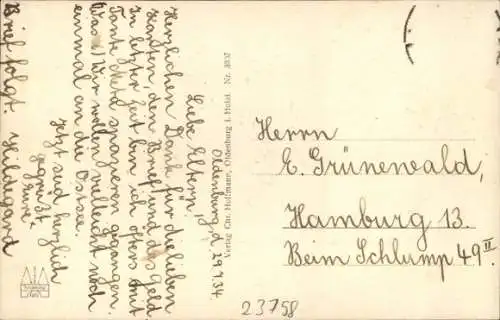 Oldenburg, d. 29.4.34.
Liebe Eltern!
Herzlichen Dank für die lieben
Karten, den Brief und das Geld.
In letzter Zeit bin ich öfters mit
Tante Meta spazieren gegangen.
Was? Wir wollen vielleicht noch
einmal an die Ostsee.
Jetzt seid herzlich
gegrüßt
Eure
Hildegard
Brief folgt.
Verlag Chr. Hoffmann, Oldenburg i. Holst. Nr.
Herrn
E. Grünewald,
Hamburg 13.
Beim Schlump 49 II
23758